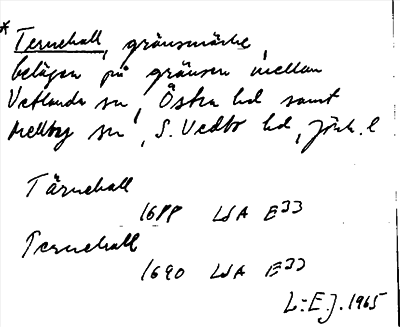 * Ternehall, gränsmärke,
belägen på gränsen mellan
Vetlanda sn, Östra hd samt
Mellby sn, S. Vedbo hd, Jönk. l
Tärnehall
1688 LSA E33
Ternehall
1690 LSA E33
L:E.J. 1965